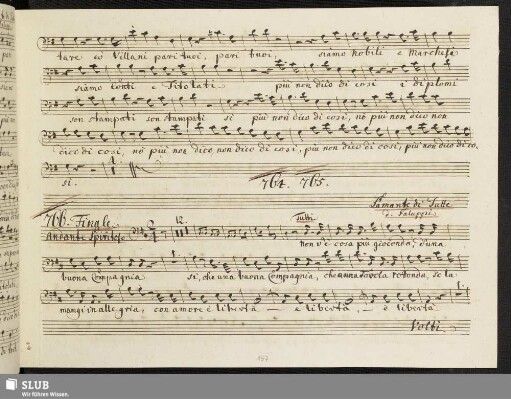 tare co Villani pari tuoi, pari tuoi, siamo Nobili e Marchesi
siamo Conti e Titolati più non dico di così i diplomi
son stampati son stampati si più non dico di così, nò più non dico non
dico di così, nò più non dico non dico di così, più non dico di così, più non dico di co,
si.
764. 765.
L'amante di Tutte
di Galuppi
766. Finale
12.
Tutti
andante Spiritoso
non v'è cosa più gioconda, d'una
buona Compagnia si, che una buona Compagnia, che una tavola rotonda, se la
mangi in allegria, con amore e libertà, — e libertà, — e libertà
Volti
157
SLUB
Wir führen Wissen.